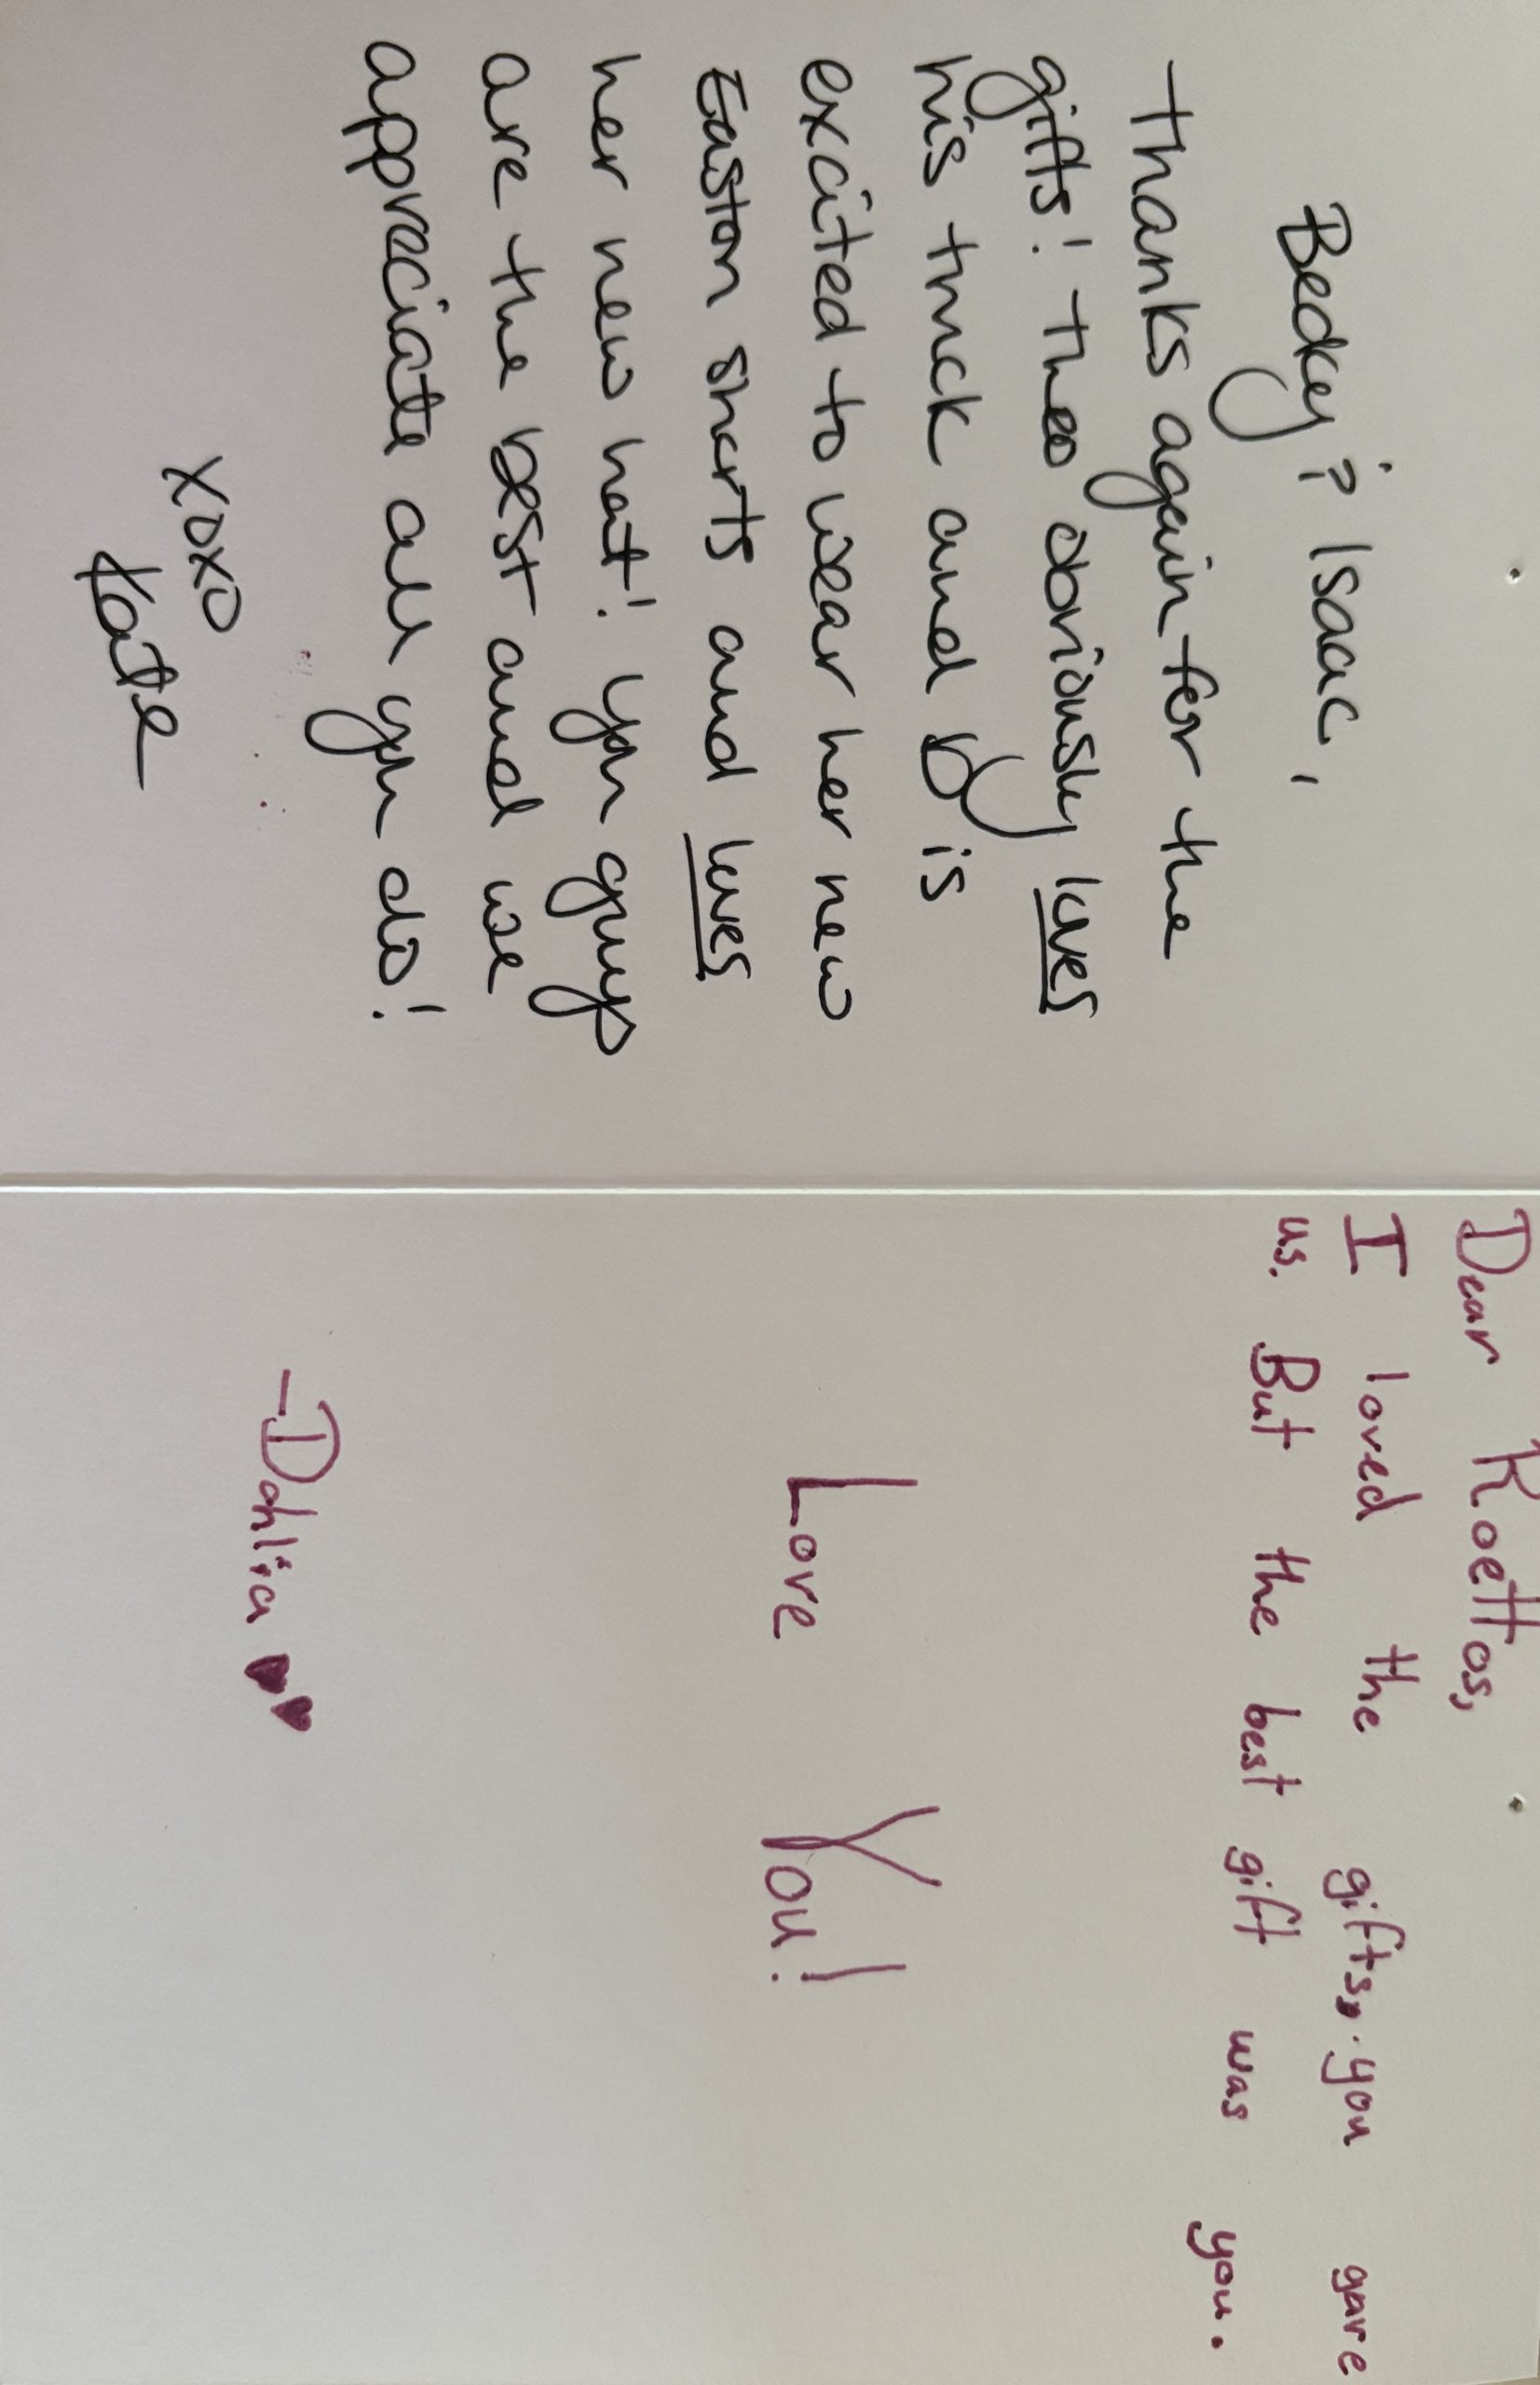 Becky & Isaac,
Thanks again for the
gifts! Theo obviously loves
his truck and D is
excited to wear her new
Easton shirts and loves
her new hat! You guys
are the best and we
appreciate all you do!
xoxo
Kate
Dear Koettos,
I loved the gifts, you gave
us. But the best gift was you.
Love You!
-Dahlia ♥♥